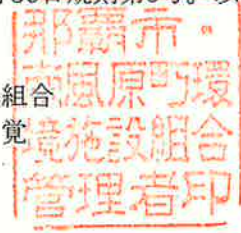 日規則第
組合
覚
那覇市・
南風原町環
境施設組合
管理者印